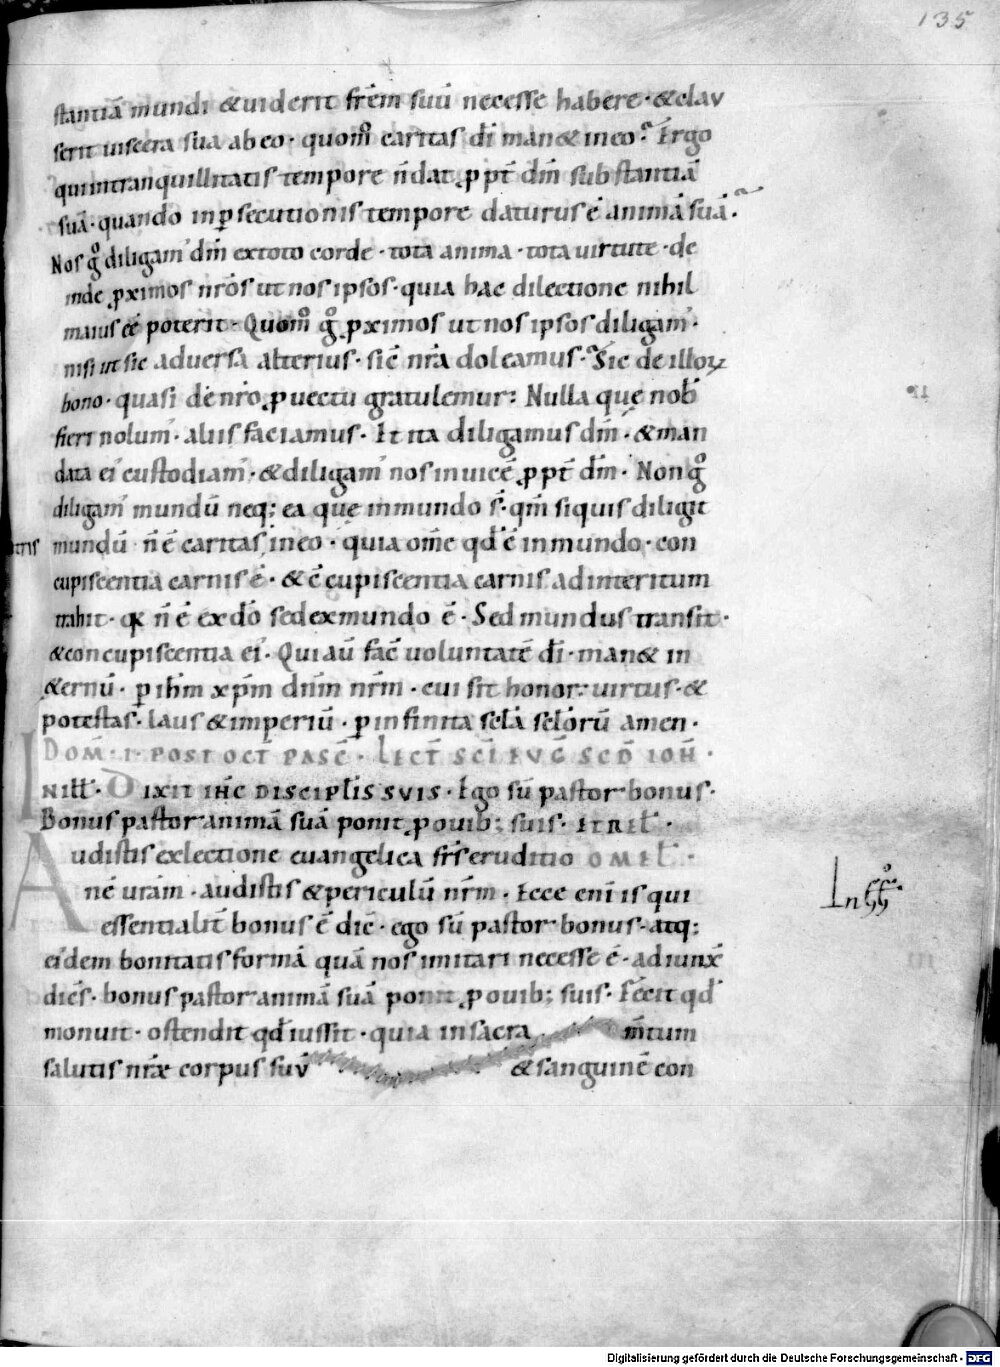 135
stantiā mundi &uiderit frēm suū necesse habere· &clau
serit uiscera sua ab eo· quom̊ caritas dī man& in eo? Ergo
qui in tranquillitatis tempore n̄ dat ꝓpt̄ dm̄ substantiā
suā· quando in ꝑsecutionis tempore daturus ē animā suā?
Nos g̊ diligam᾽ dm̄ ex toto corde· tota anima· tota uirtute· de
inde ꝓximos nr̄os ut nos ipsos· quia hac dilectione nihil
maius eē poterit· Quom̊ g̊ ꝓximos ut nos ipsos diligam᾽·
nisi ut sic aduersa alterius· sic̄ nr̄a doleamus· Sic de illoꝝ
bono· quasi de nr̄o ꝓuectu gratulemur: Nulla que nob̄
fieri nolum᾽· aliis faciamus· It ita diligamus dm̄· &man
data ei᾽ custodiam᾽· &diligam᾽ nos inuicē ꝓpt̄ dm̄· Non g̊
diligam᾽ mundū neq; ea que in mundo s̄· qm̄ siquis diligit
tris mundū n̄ ē caritas in eo· quia om̄e qd̄ ē in mundo· con
cupiscentia carnis ē· & c̄cupiscentia carnis ad interitum
trahit· qꝛ n̄ ē ex dō sed ex mundo ē· Sed mundus transit·
&concupiscentia ei᾽· Qui aū fac̄ uoluntatē dī· man& in
&ernū· ꝑ ihm̄ xpm̄ dnm̄ nrm̄· cui sit honor: uirtus· &
potestas· laus &imperiū· ꝑ infinita scla sclorū amen·
DOM̄· I· POST OCT̄ PASC̄· LECT̄ SC̄I EVḠ SCD̄ IOH̄·
IN ILL̄· DIXIT IHC̄ DISCIPLIS SVIS· Ego sū pastor bonus·
Bonus pastor animā suā ponit ꝓ ouib; suis· ET REL̄·
Audistis ex lectione euangelica frs̄ eruditio OMEL̄·
nē uram̄· audistis &periculū nrm̄· Ecce eni᾽ is qui
essentialit̄ bonus ē dic̄· ego sū pastor bonus· atq;
eidem bonitatis formā quā nos imitari necesse ē· adiunx̄
In ẜẜ·
dic̄s· bonus pastor animā suā ponit ꝓ ouib; suis· Fecit qd̄
monuit· ostendit qd̄ iussit· quia in sacra m̄tum
salutis nr̄æ corpus suū &sanguinē con
Digitalisierung gefördert durch die Deutsche Forschungsgemeinschaft - DFG